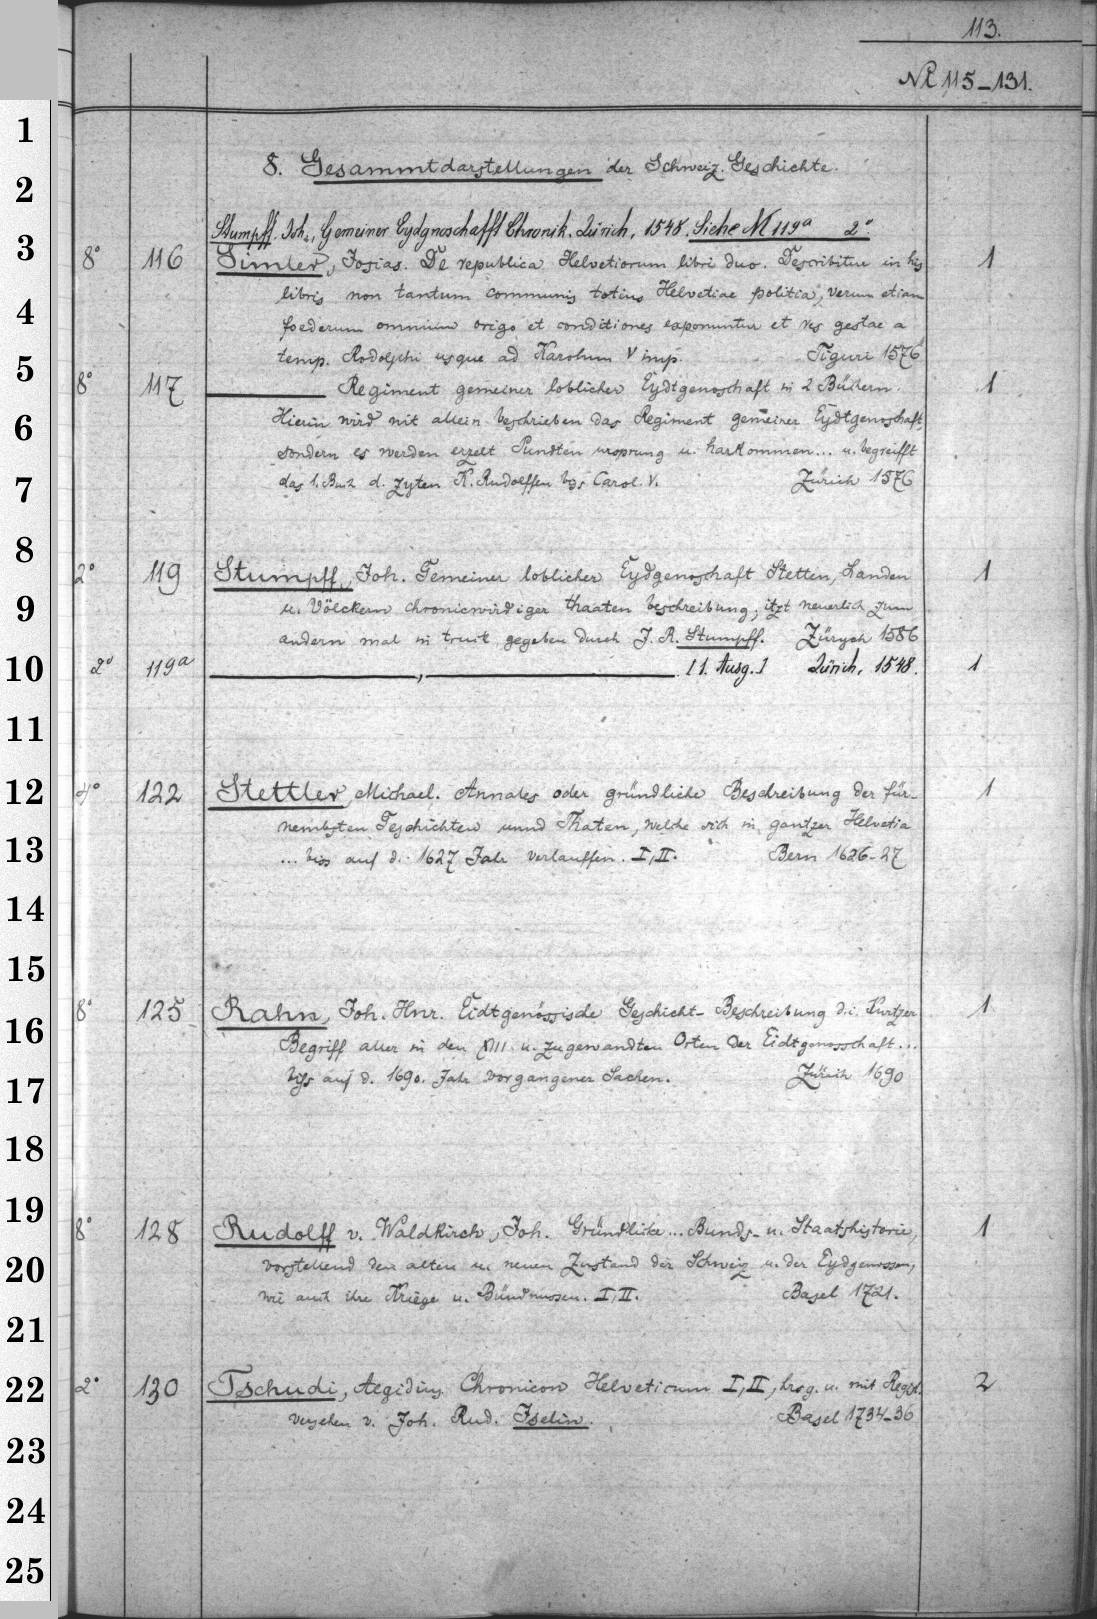 113.
№ 115-131.
1
2
8. Gesammtdarstellungen der Schweiz. Geschichte.
Stumpff. Joh., Gemeiner Eydgnoschafft Chronik. Zürich, 1548. Siehe № 119a 2°.
3
8° 116 Simler, Josias. De republica Helvetiorum libri duo. Describitur in his 1
4
libris non tantum communis totius Helvetiae politia, verum etiam
foederum omnium origo et conditiones exponuntur et res gestae a
5
temp. Rodolphi usque ad Karolum V imp. Tiguri 1576
8° 117 ——— Regiment gemeiner loblicher Eydtgenoschaft in 2 Büchern. 1
6
Hierin wird nit allein beschrieben das Regiment gemeiner Eydtgenoschaft,
sondern es werden erzelt Pundten ursprung u. harkommen... u. begreifft
7
das 1. Bu.2 d. zyten K. Rudolffen bis Carol. V. Zürich 1576
8
2° 119 Stumpff, Joh. Gemeiner loblicher Eydgenoschaft Stetten, Landen 1
9
u. Völckern chronicwirdiger thaaten beschreibung, itzt neuerlich zum
andern mal in truck gegeben durch J. R. Stumpff. Zürych 1586
10
2° 119a ———, ———. [1. Ausg.] Zürich, 1548. 1
11
12
4° 122 Stettler, Michael. Annales oder gründliche Beschreibung der für- 1
nembsten Geschichten unnd Thaten, welche sich in gantzer Helvetia
13
... biss auf d. 1627 Jahr verlauffen. I, II. Bern 1626-27
14
15
8° 125 Rahn, Joh. Hnr. Eidtgenössische Geschicht-Beschreibung d.i. Kurtzer 1
16
Begriff aller in den XIII u. zugewandten Orten der Eidtgenossschaft...
17
biss auf d. 1690. Jahr vorgangener Sachen. Zürich 1690
18
19
8° 128 Rudolff v. Waldkirch, Joh. Gründliche... Bunds- u. Staatshistorie, 1
20
vorstellend den alten u. neuen Zustand der Schweiz u. der Eydgenossen,
wie auch ihre Kriege u. Bündnussen. I, II. Basel 1721.
21
22
2° 130 Tschudi, Aegidius. Chronicon Helveticum I, II, hrsg. u. mit Regist. 2
versehen v. Joh. Rud. Iselin. Basel 1734-36
23
24
25